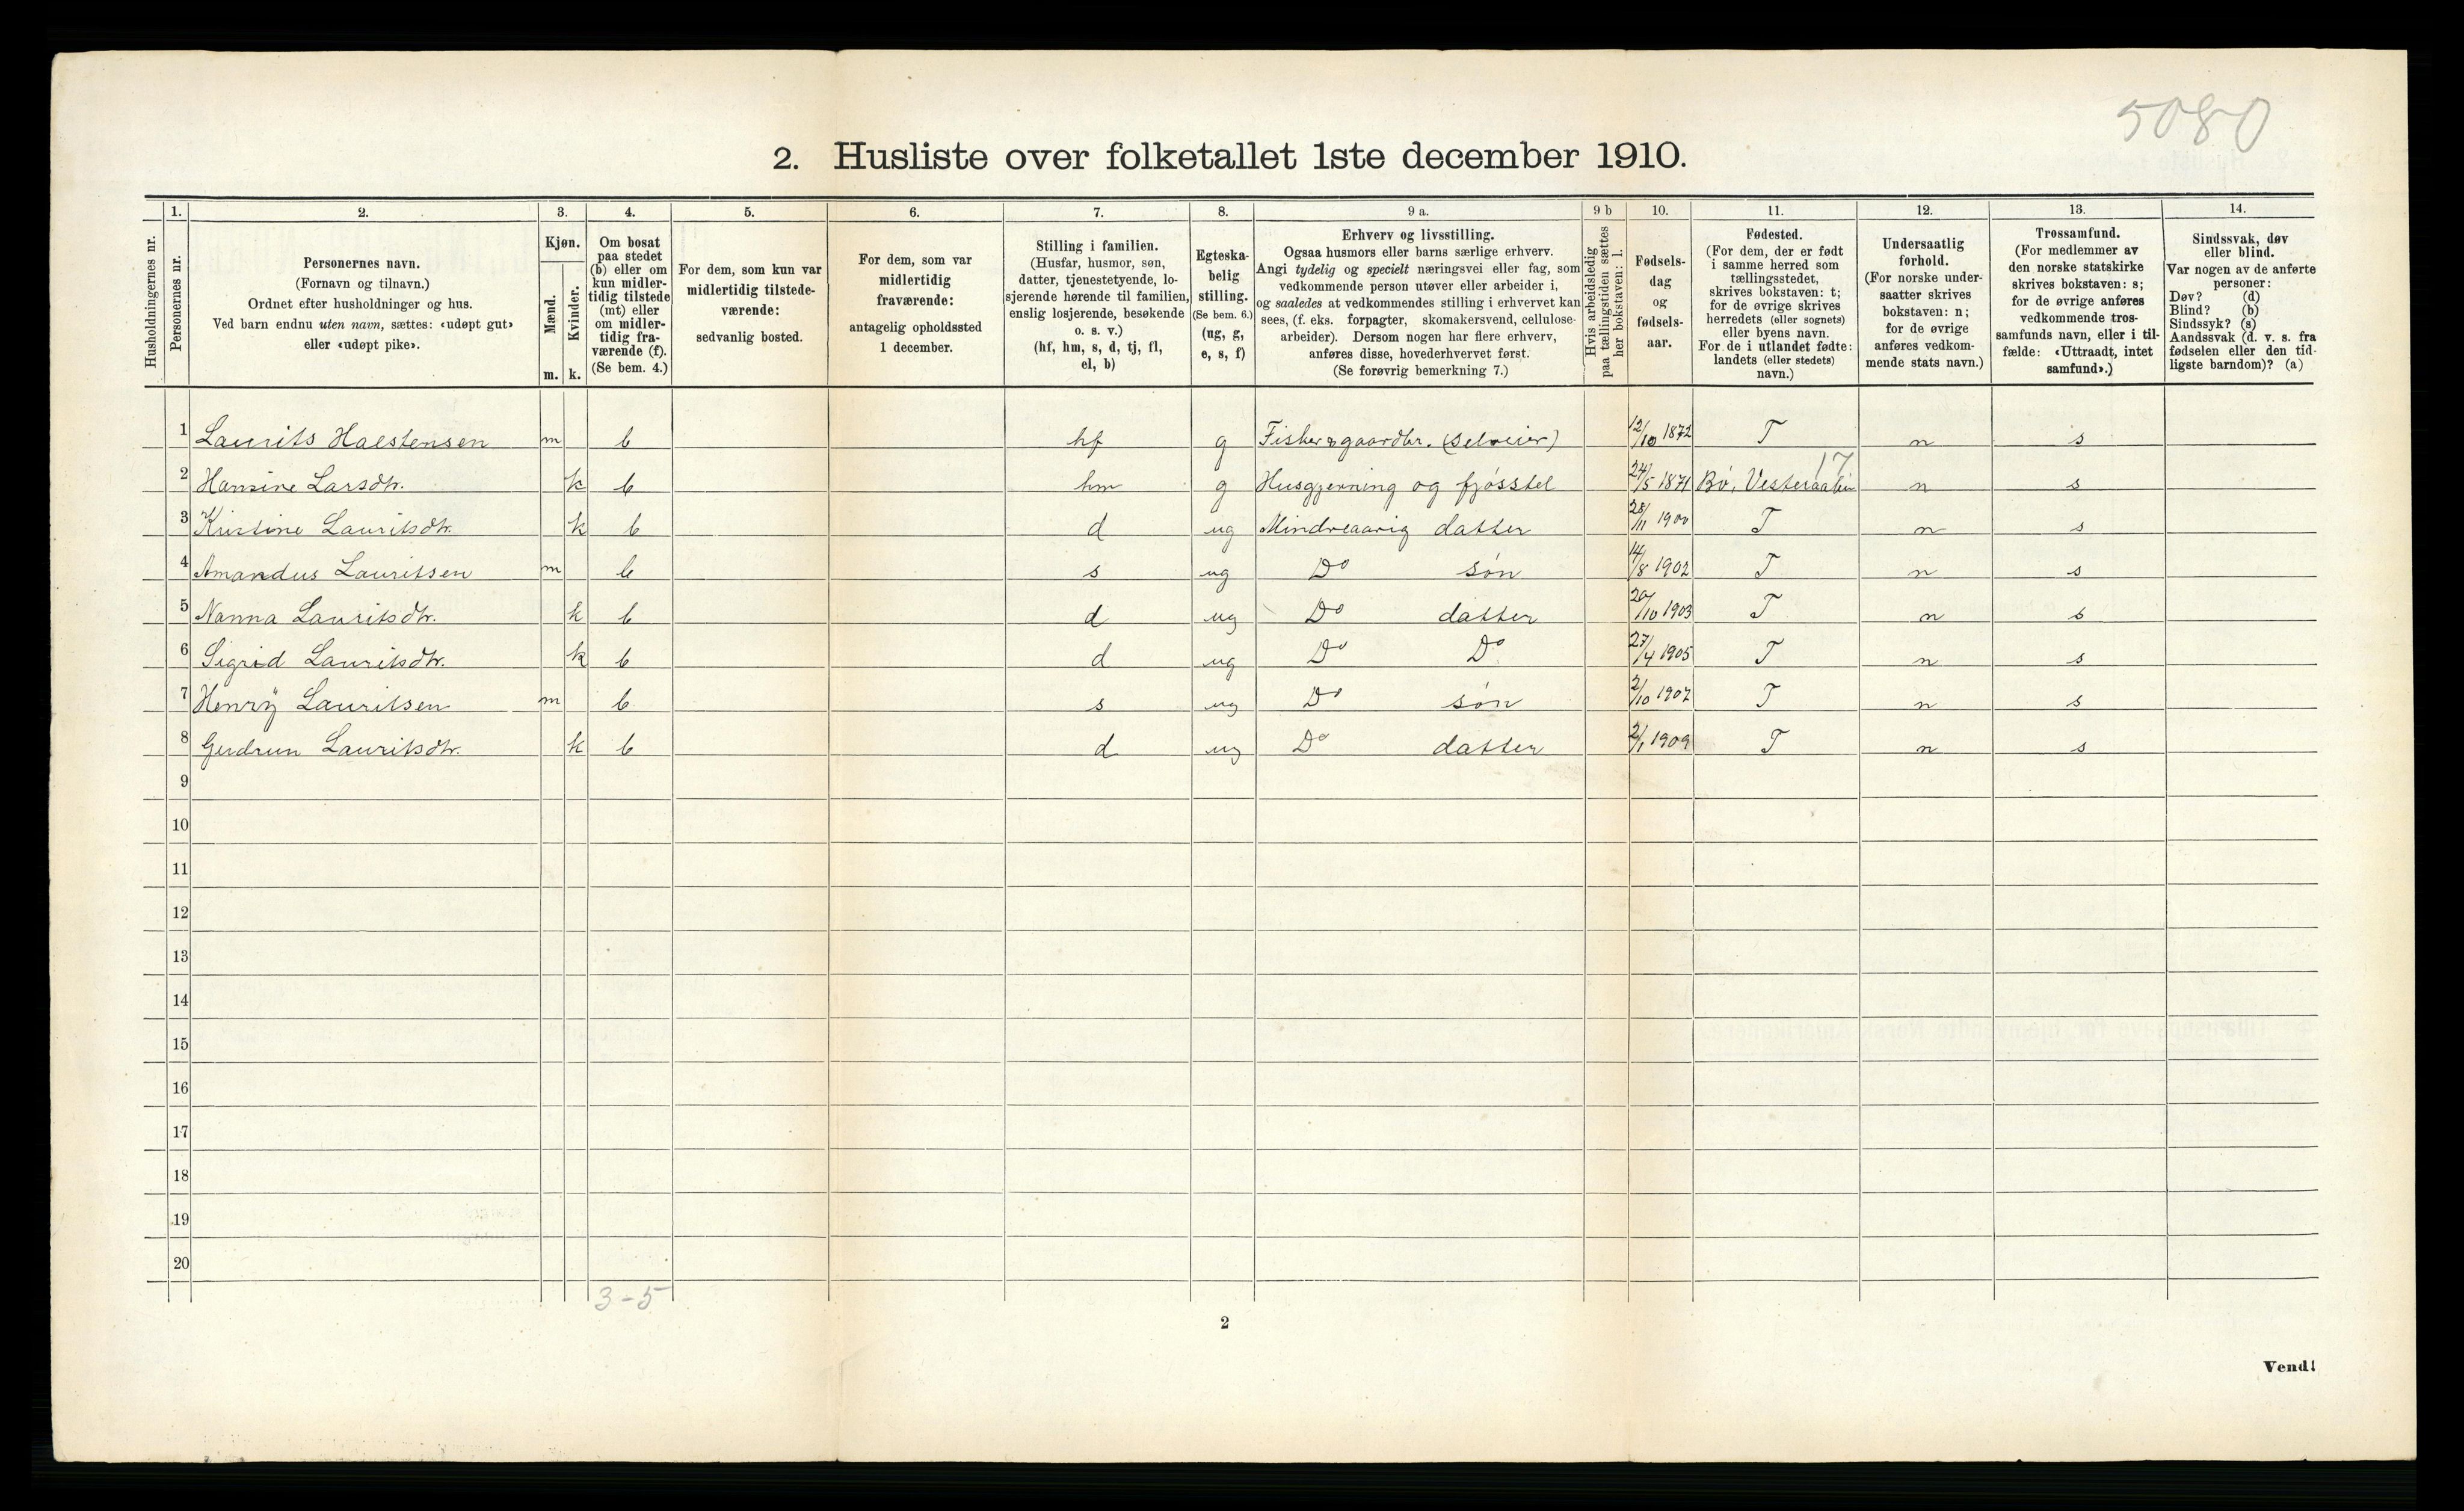 5080
2. Husliste over folketallet 1ste december 1910.
1. 2. 3. 4. 5. 6. 7. 8. 9 a. 9 b 10. 11. 12. 13. 14.
Husholdningernes nr.
Personernes nr.
Personernes navn.
(Fornavn og tilnavn.)
Ordnet efter husholdninger og hus.
Ved barn endnu uten navn, sættes: «udøpt gut»
eller «udøpt pike».
Kjøn.
Mænd.
Kvinder.
m. k.
Om bosat
paa stedet
(b) eller om
kun midler-
tidig tilstede
(mt) eller
om midler-
tidig fra-
værende (f).
(Se bem. 4.)
For dem, som kun var
midlertidig tilstede-
værende:
sedvanlig bosted.
For dem, som var
midlertidig
fraværende:
antagelig opholdssted
1 december.
Stilling i familien.
(Husfar, husmor, søn,
datter, tjenestetyende, lo-
sjerende hørende til familien,
enslig losjerende, besøkende
o. s. v.)
(hf, hm, s, d, tj, fl,
el, b)
Egteska-
belig
stilling.
(Se bem. 6.)
(ug, g,
e, s, f)
Erhverv og livsstilling.
Ogsaa husmors eller barns særlige erhverv.
Angi tydelig og specielt næringsvei eller fag, som
vedkommende person utøver eller arbeider i,
og saaledes at vedkommendes stilling i erhvervet kan
sees, (f. eks. forpagter, skomakersvend, cellulose-
arbeider). Dersom nogen har flere erhverv,
anføres disse, hovederhvervet først.
(Se forøvrig bemerkning 7.)
Hvis arbeidsledig
paa tællingstiden sættes
her bokstaven: l.
Fødsels-
dag
og
fødsels-
aar.
Fødested.
(For dem, der er født
i samme herred som
tællingsstedet,
skrives bokstaven: t;
for de øvrige skrives
herredets (eller sognets)
eller byens navn.
For de i utlandet fødte:
landets (eller stedets)
navn.)
Undersaatlig
forhold.
(For norske under-
saatter skrives
bokstaven: n;
for de øvrige
anføres vedkom-
mende stats navn.)
Trossamfund.
(For medlemmer av
den norske statskirke
skrives bokstaven: s;
for de øvrige anføres
vedkommende tros-
samfunds navn, eller i til-
fælde: «Uttraadt, intet
samfund».)
Sindssvak, døv
eller blind.
Var nogen av de anførte
personer:
Døv? (d)
Blind? (b)
Sindssyk? (s)
Aandssvak (d. v. s. fra
fødselen eller den tid-
ligste barndom)? (a)
1 Laurits Halstensen m b hf g Fisker & gaardbr. (selveier) 12/10 1872 T n s
17
2 Hansine Larsdtr. k b hm g Husgjerning og fjøsstel 24/5 1871 Bø, Vesteraalen n s
3 Kristine Lauritsdtr. k b d ug Mindreaarig datter 28/11 1900 T n s
4 Amandus Lauritsen m b s ug Do søn 14/8 1902 T n s
5 Nanna Lauritsdtr. k b d ug Do datter 20/10 1903 T n s
6 Sigrid Lauritsdtr. k b d ug Do Do 27/4 1905 T n s
7 Henrÿ Lauritsen m b s ug Do søn 2/10 1907 T n s
8 Gudrun Lauritsdtr. k b d ug Do datter 2/1 1909 T n s
9
10
11
12
13
14
15
16
17
18
19
20
3-5
2
Vend!